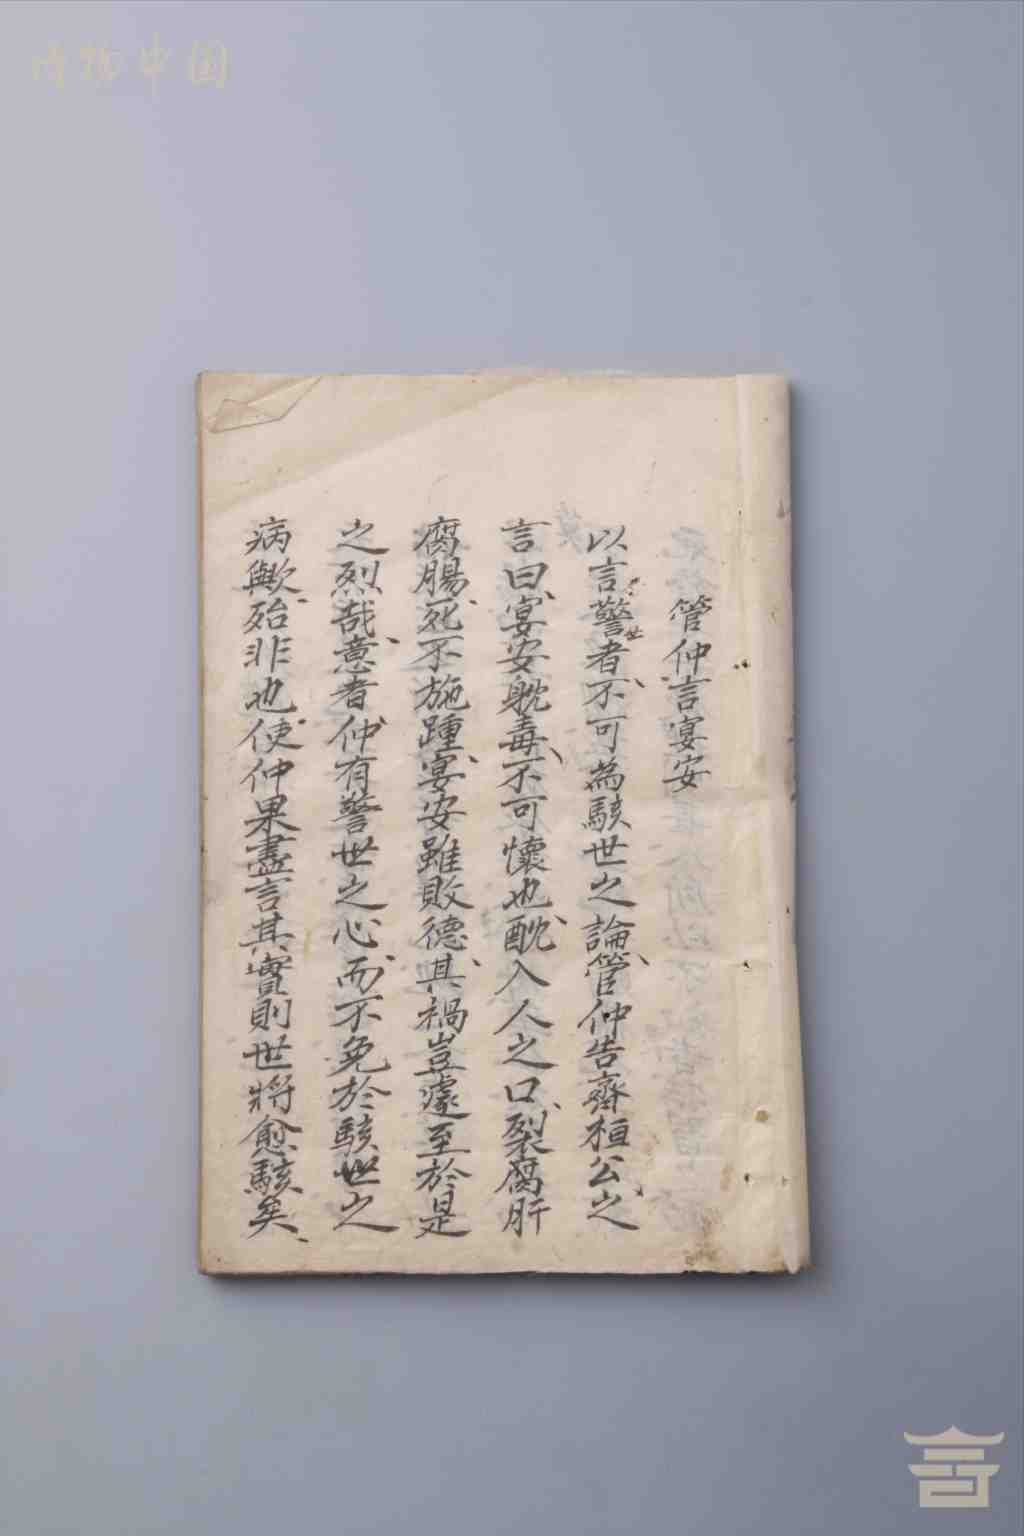 博物中国
管仲言宴安
以言警世者不可為駭世之論管仲告齊桓公之
言曰宴安躭毒不可懷也酖入人之口裂腐肝
腐腸死不施踵宴安雖敗德其禍豈遽至於是
之烈哉意者仲有警世之心而不免於駭世之
病歟殆非也使仲果盡言其實則世將愈駭矣